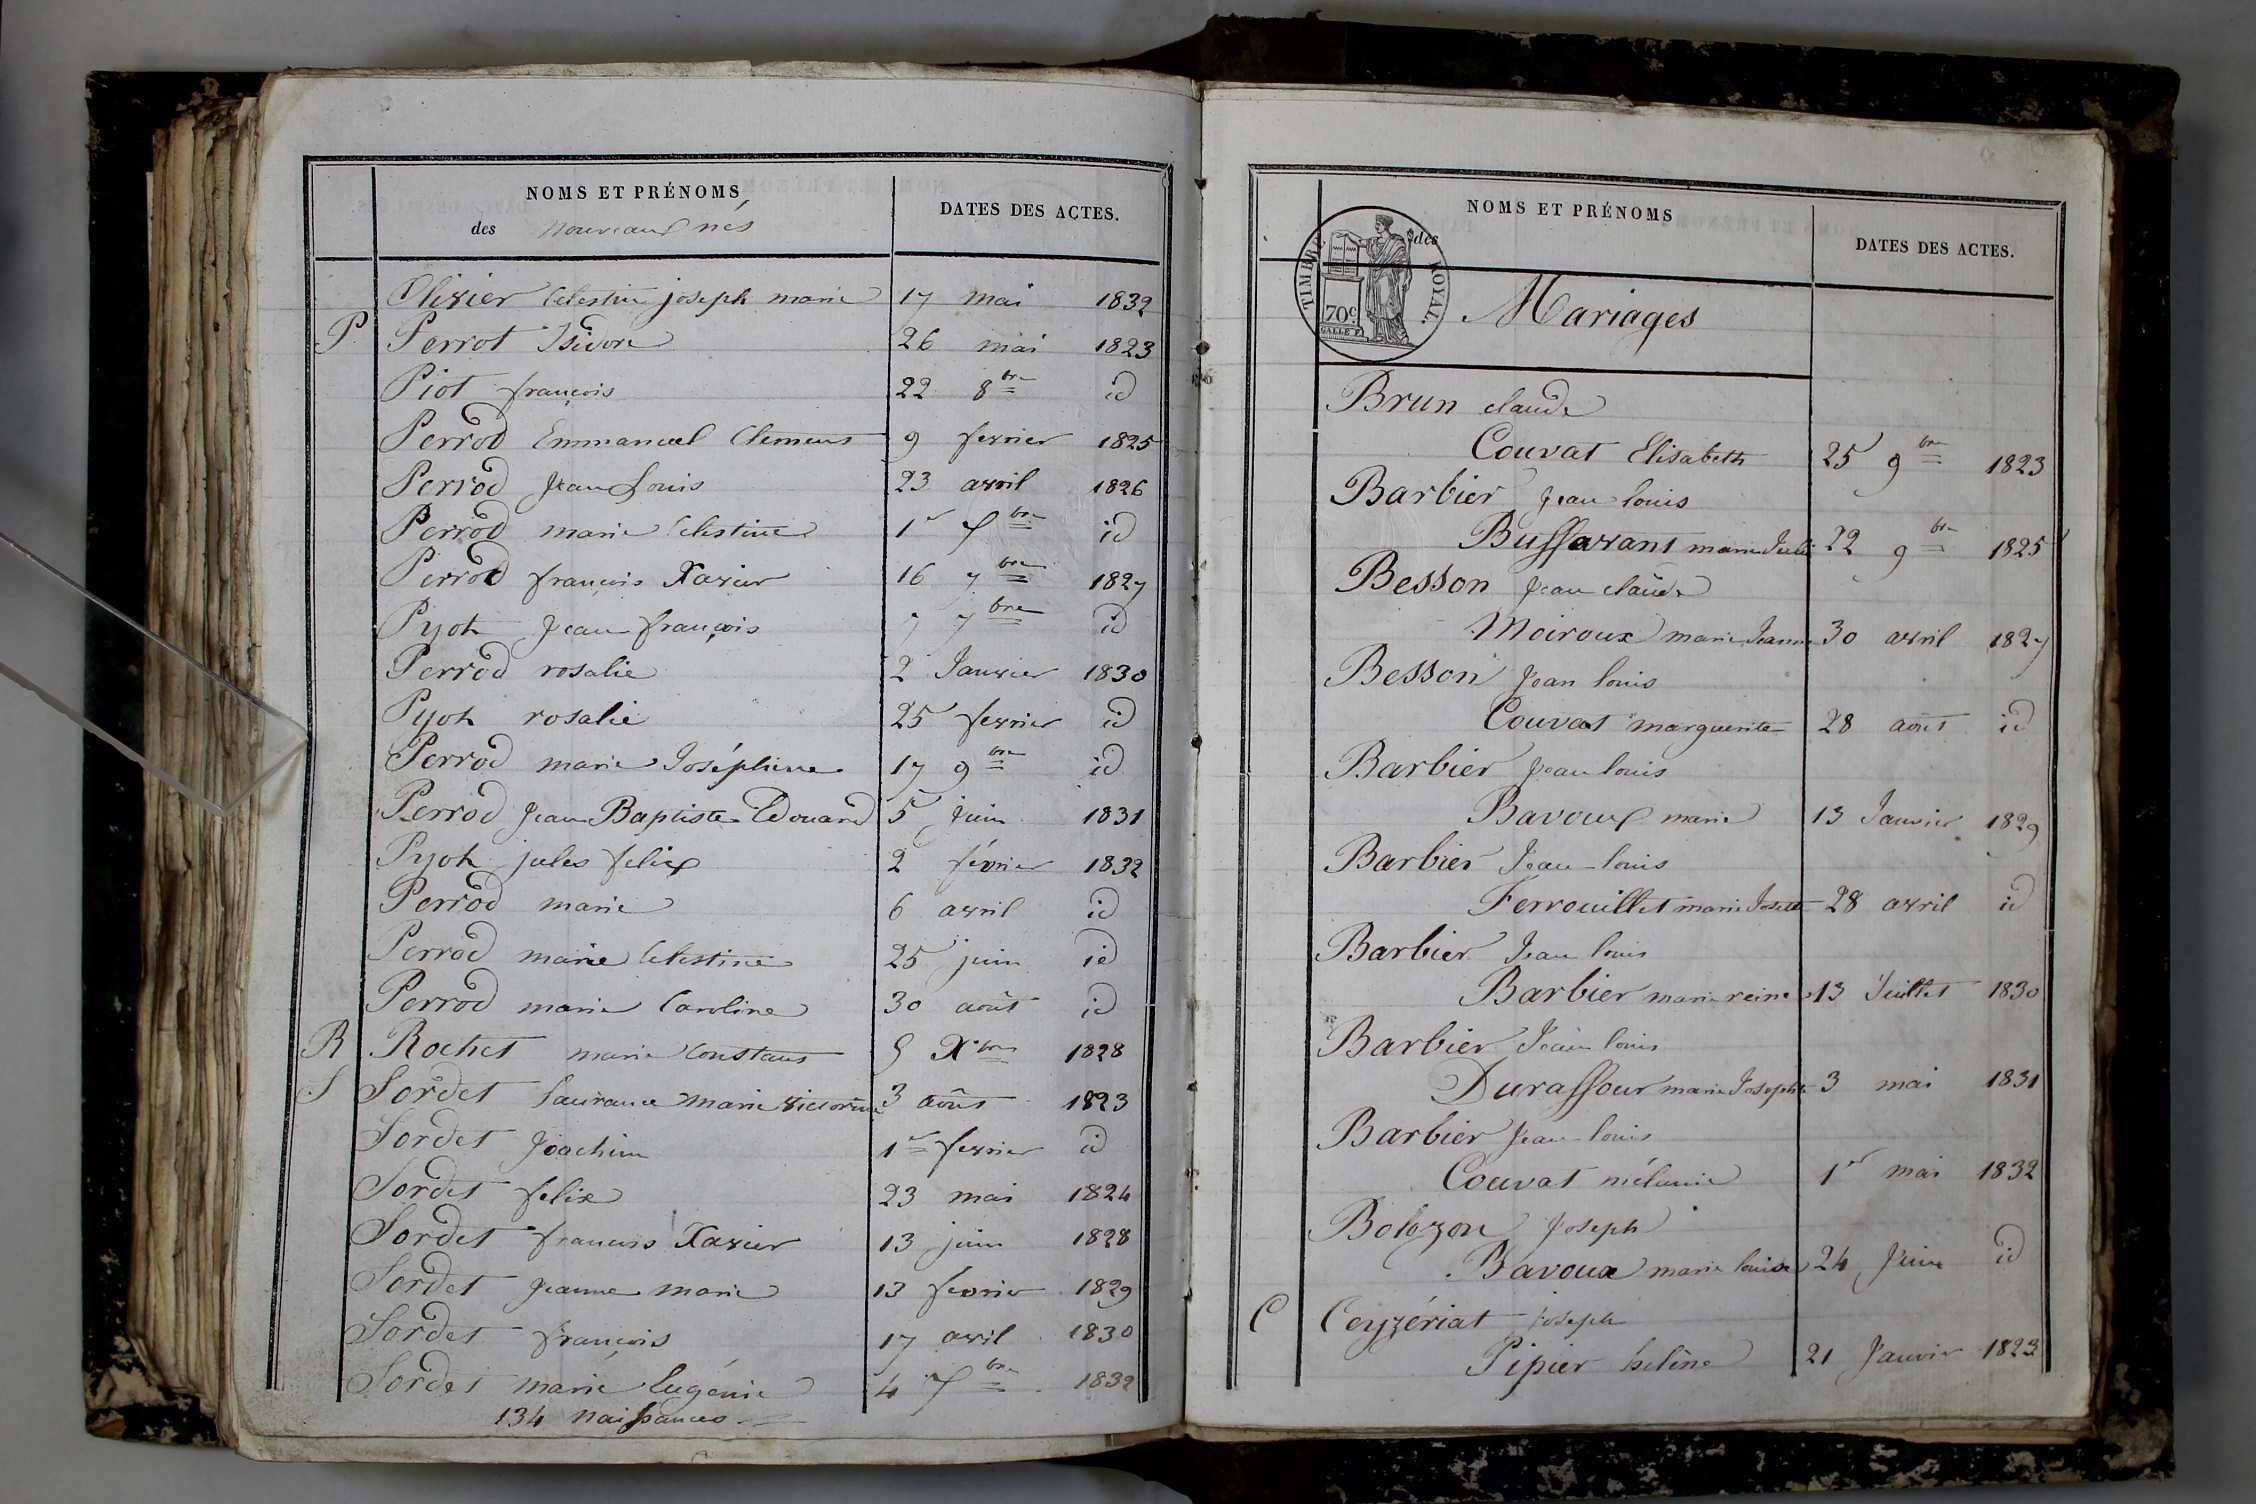 NOMS ET PRÉNOMS
des nouveaux nés
DATES DES ACTES.
Olivier Celestin joseph marie 17 mai 1832
P Perrot Isidore 26 mai 1823
Piot françois 22 8bre id
Perrod Emmanuel Clemens 9 fevrier 1825
Perrod Jean Louis 23 avril 1826
Perrod marie Celestine 1er 7bre id
Perrod françois Xavier 16 7bre 1827
Pyot Jean françois 7 7bre id
Perrod rosalie 2 Janvier 1830
Pyot rosalie 25 fevrier id
Perrod marie Joséphine 17 9bre id
Perrod Jean Baptiste Edouard 5 juin 1831
Pyot jules felix 2 février 1832
Perrod marie 6 avril id
Perrod marie Celestine 25 juin id
Perrod marie Caroline 30 août id
R Rochet marie Constans 5 Xbre 1828
S Sordet Laurance marie victorine 3 août 1823
Sordet Joachim 1er fevrier id
Sordet felix 23 mai 1824
Sordet françois Xavier 13 juin 1828
Sordet Jeanne marie 13 fevrier 1829
Sordet françois 17 avril 1830
Sordet marie Eugénie 4 7bre 1832
134 naissances
NOMS ET PRÉNOMS
des
DATES DES ACTES.
TIMBRE ROYAL.
70c.
GALLE F.
Mariages
Brun claude
Couvat Elisabeth 25 9bre 1823
Barbier Jean louis
Buffavant marie Julie 22 9bre 1825
Besson Jean claude
Moiroux marie Jeanne 30 avril 1827
Besson Jean louis
Couvat marguerite 28 août id
Barbier Jean louis
Bavoux marie 13 Janvier 1829
Barbier Jean louis
Ferrouillet marie Josette 28 avril id
Barbier Jean louis
Barbier marie reine 13 Juillet 1830
Barbier Jean louis
Duraffour marie Josephte 3 mai 1831
Barbier Jean louis
Couvat mélanie 1er mai 1832
Bolozon Joseph
Bavoux marie louise 24 Juin id
C Ceyzériat joseph
Pipier helène 21 Janvier 1823